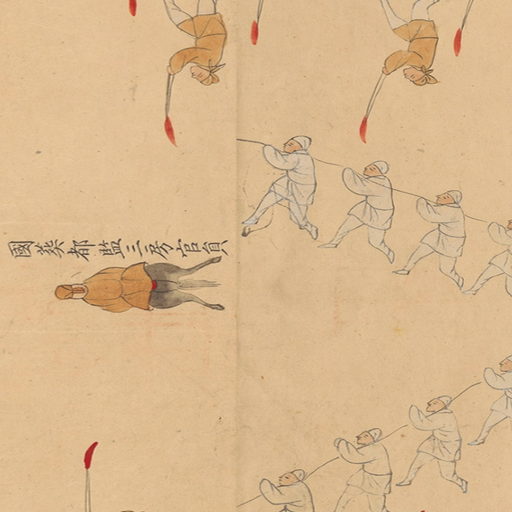 國葬都監三房官員